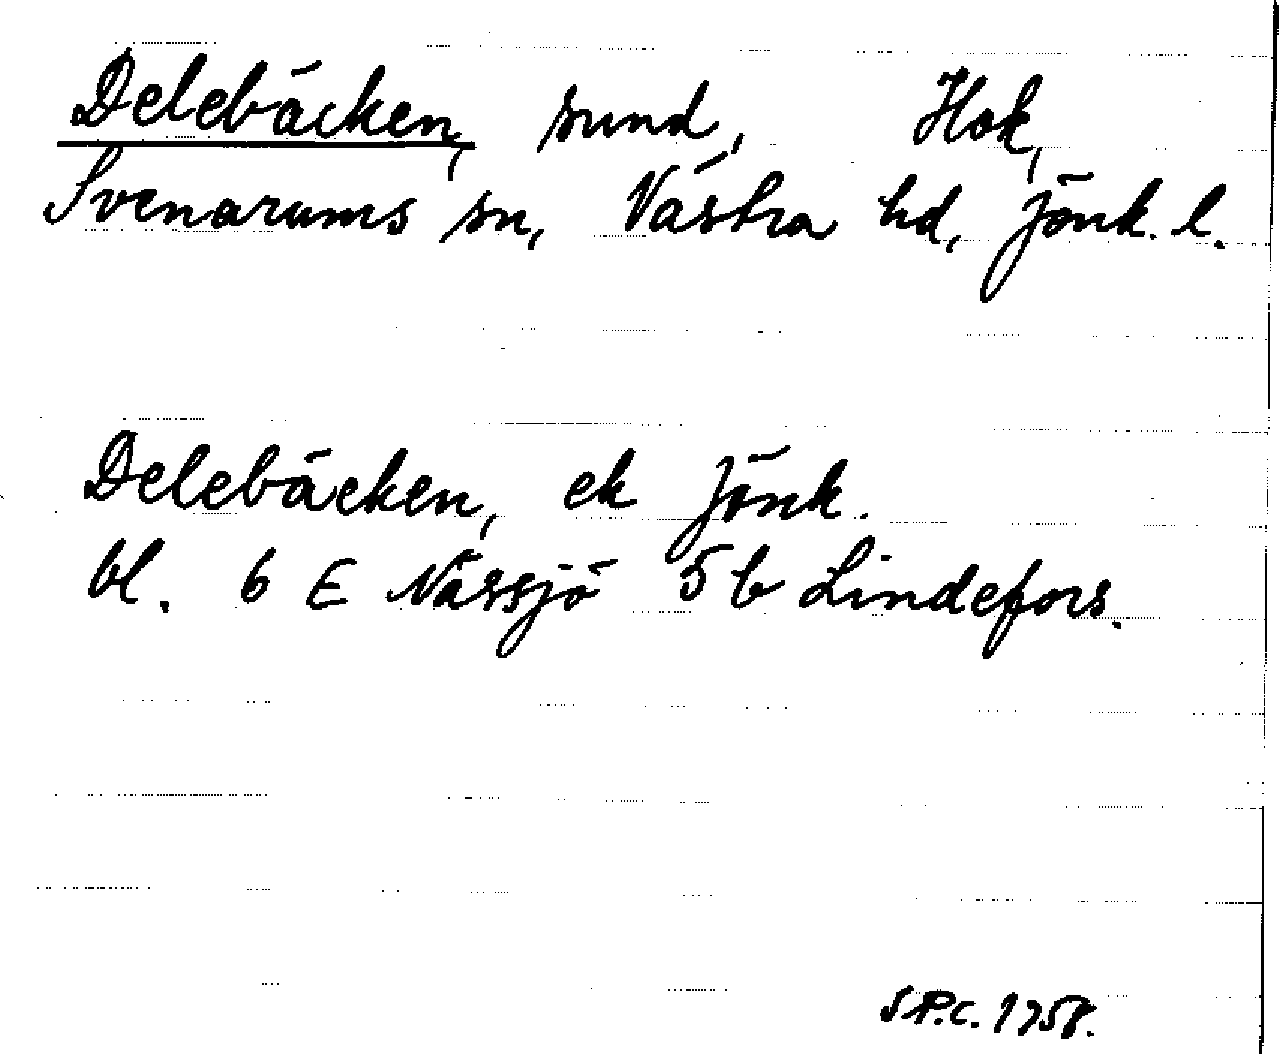 Delebäcken, sund, Hok,
Svenarums sn, Västra hd, Jönk. l.
Delebäcken, ek Jönk.
bl. 6 E Nässjö 5 b Lindefors.
S P.C. 1758.